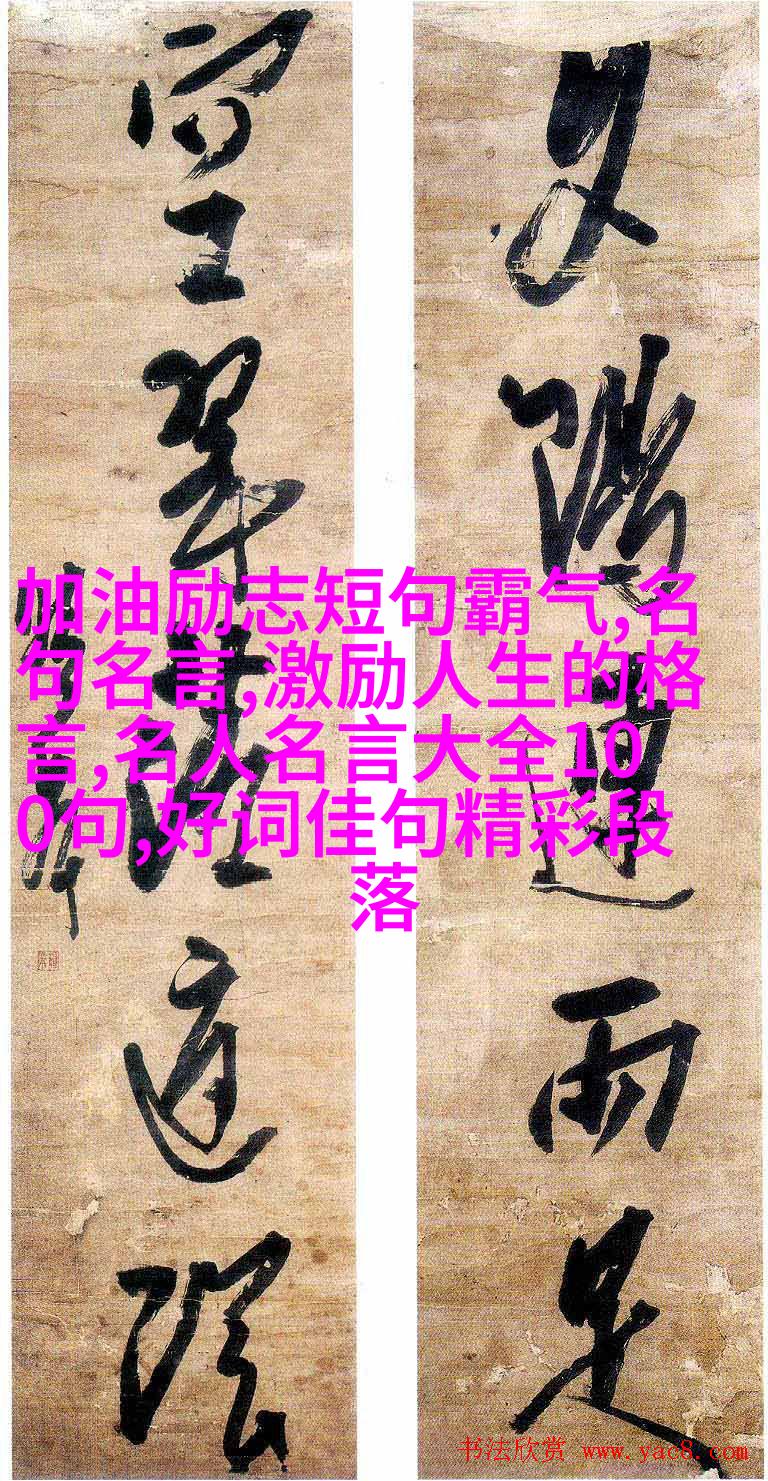 夕陽連雨足
空翠落庭陰
加油励志短句霸气,名
句名言,激励人生的格
言,名人名言大全10
0句,好词佳句精彩段
落
书法欣赏 www.yac8.com